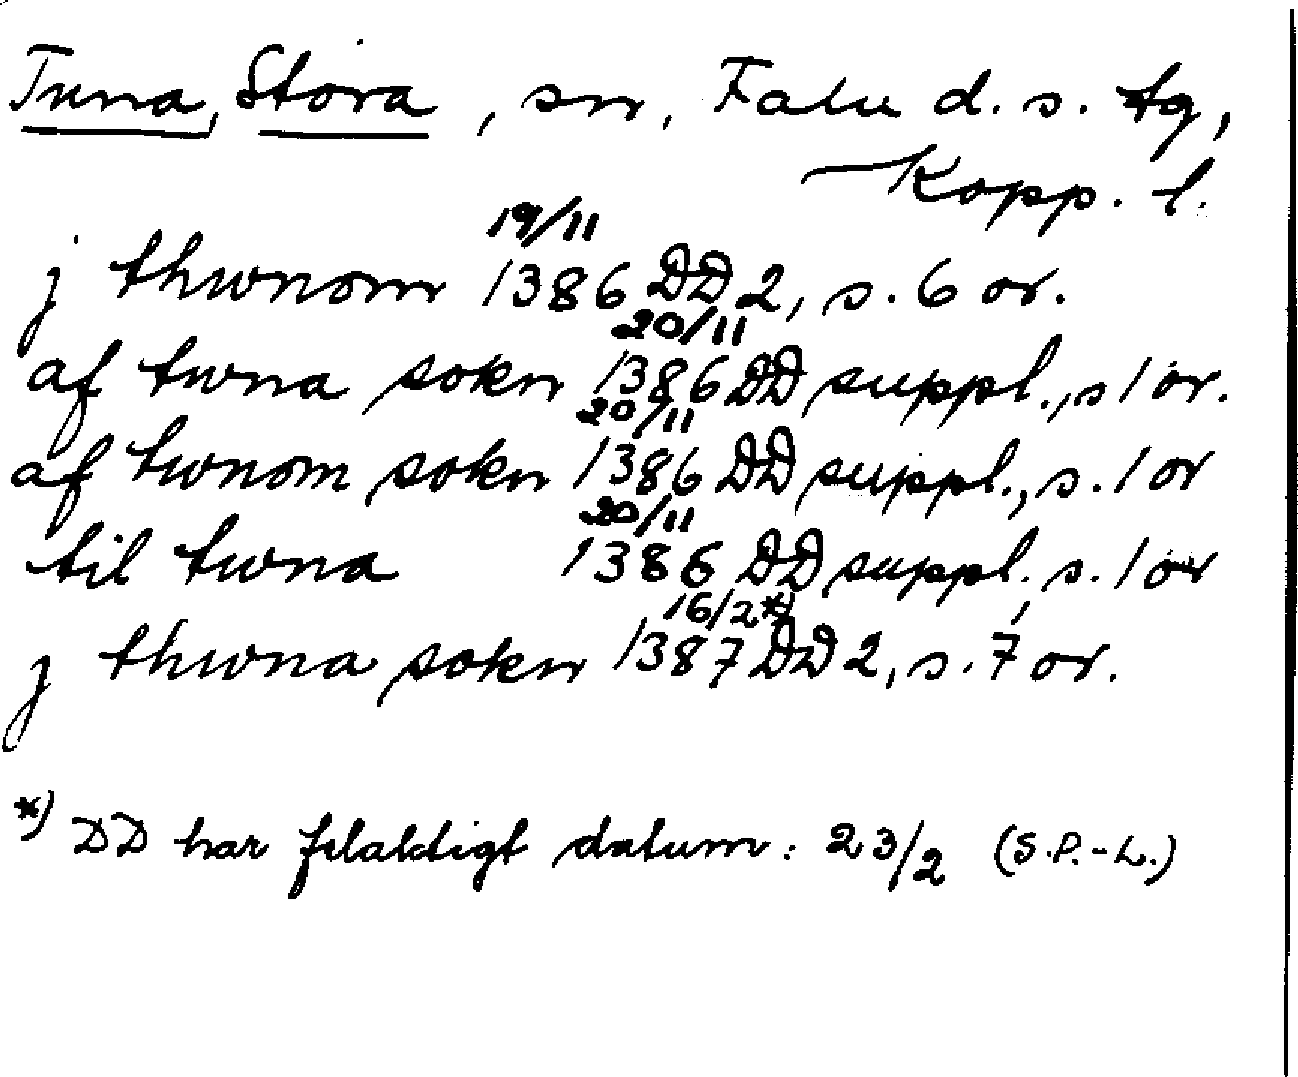 Tuna, Stora, sn, Falu d. s. tg,
Kopp. l.
19/11
j thwnom 1386 DD 2, s. 6 or.
20/11
af twna sokn 1386 DD suppl., s 1 or.
20/11
af twnom sokn 1386 DD suppl., s. 1 or
20/11
til twna 1386 DD suppl., s. 1 or
16/2*)
j thwna sokn 1387 DD 2, s. 7 or.
*) DD har felaktigt datum: 23/2 (S.P.-L.)